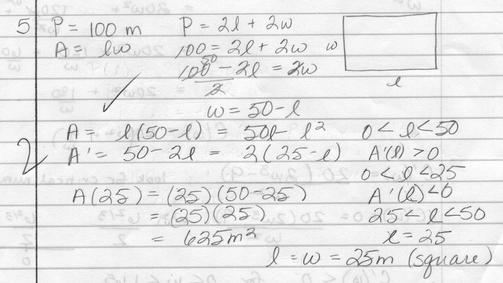 5 P = 100 m P = 2l + 2w
A = lw 100 = 2l + 2w w
100 50 - 2l = 2w l
2
w = 50 - l
✓
A = l(50-l) = 50l - l² 0 < l < 50
2 A' = 50 - 2l = 2(25-l) A'(l) > 0
0 < l < 25
A(25) = (25)(50-25) A'(l) < 0
= (25)(25) 25 < l < 50
= 625m² l = 25
l = w = 25m (square)